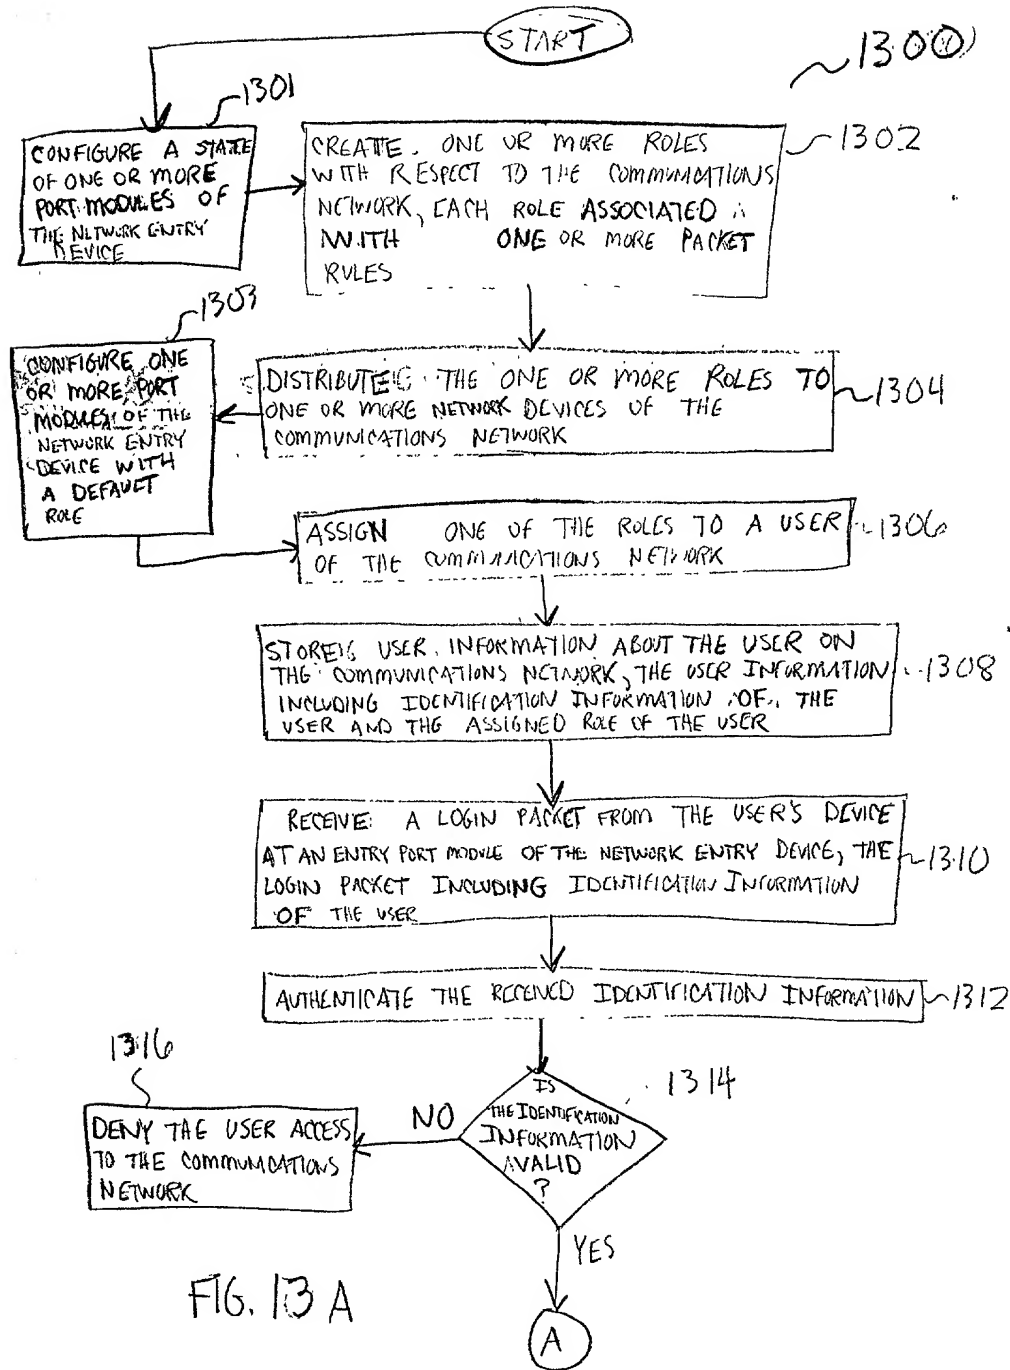 START
1300
1301
CONFIGURE A STATE
OF ONE OR MORE
PORT MODULES OF
THE NETWORK ENTRY
DEVICE
1302
CREATE ONE OR MORE ROLES
WITH RESPECT TO THE COMMUNICATIONS
NETWORK, EACH ROLE ASSOCIATED
WITH ONE OR MORE PACKET
RULES
1303
CONFIGURE ONE
OR MORE PORT
MODULES OF THE
NETWORK ENTRY
DEVICE WITH
A DEFAULT
ROLE
DISTRIBUTE THE ONE OR MORE ROLES TO
ONE OR MORE NETWORK DEVICES OF THE
COMMUNICATIONS NETWORK
1304
ASSIGN ONE OF THE ROLES TO A USER
OF THE COMMUNICATIONS NETWORK
1306
STORE USER INFORMATION ABOUT THE USER ON
THE COMMUNICATIONS NETWORK, THE USER INFORMATION
INCLUDING IDENTIFICATION INFORMATION OF THE
USER AND THE ASSIGNED ROLE OF THE USER
1308
RECEIVE A LOGIN PACKET FROM THE USER'S DEVICE
AT AN ENTRY PORT MODULE OF THE NETWORK ENTRY DEVICE, THE
LOGIN PACKET INCLUDING IDENTIFICATION INFORMATION
OF THE USER
1310
AUTHENTICATE THE RECEIVED IDENTIFICATION INFORMATION
1312
1314
IS
THE IDENTIFICATION
INFORMATION
VALID
?
NO
1316
DENY THE USER ACCESS
TO THE COMMUNICATIONS
NETWORK
YES
A
FIG. 13 A